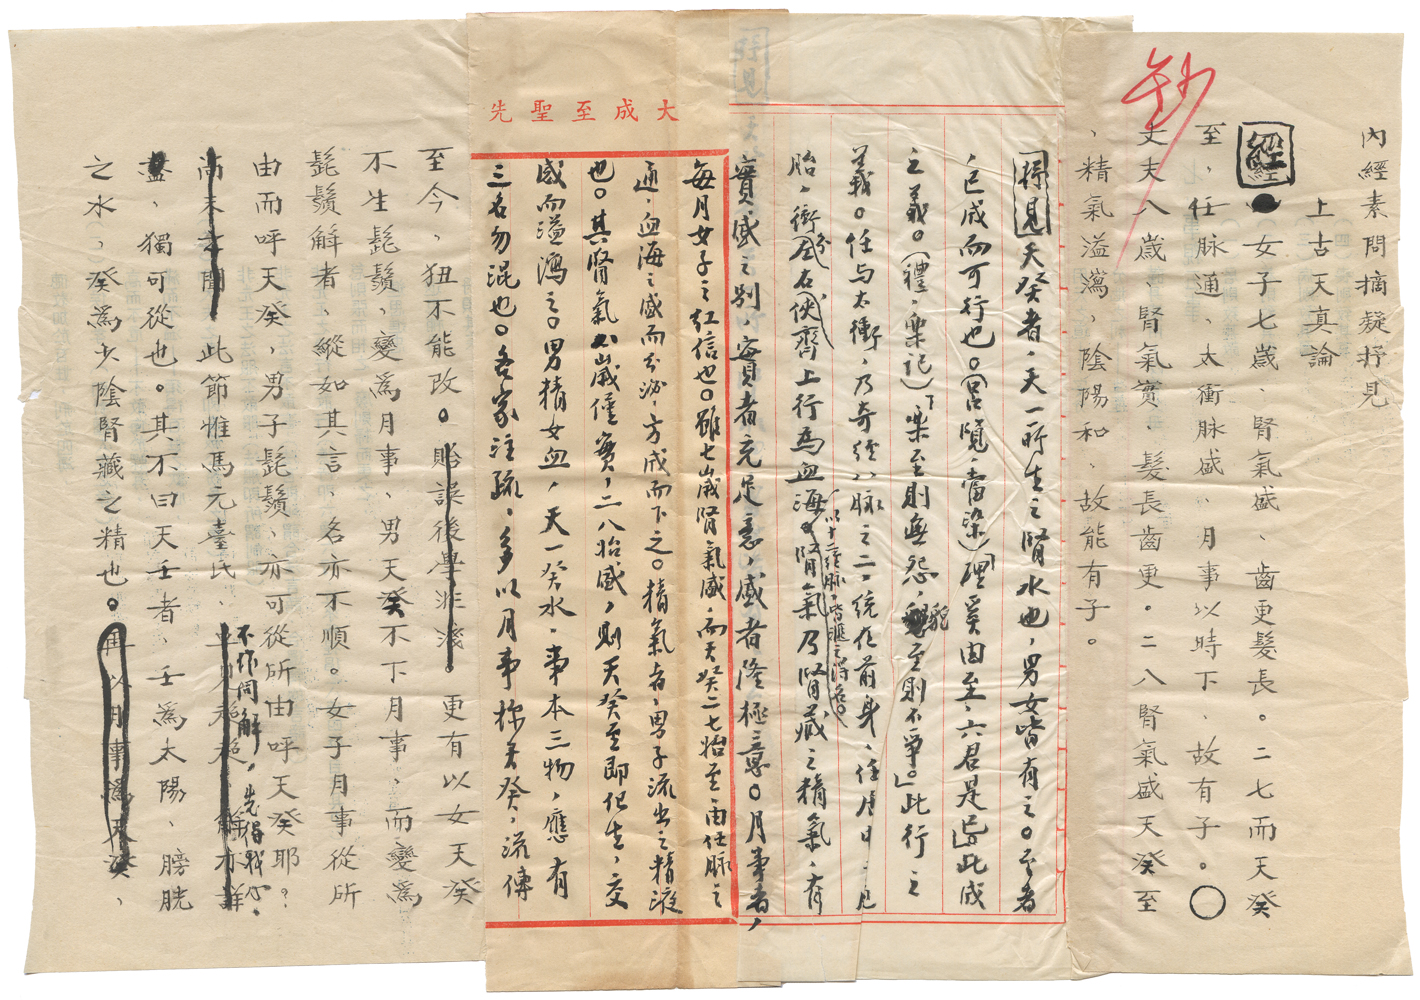 內經素問摘疑抒見
上古天真論
經 女子七歲、腎氣盛、齒更髮長。二七而天癸
至,任脉通、太衝脉盛、月事以時下、故有子。○
丈夫八歲、腎氣實、髮長齒更。二八腎氣盛天癸至
、精氣溢瀉,陰陽和、故能有子。
鈔
抒見 天癸者,天一所生之腎水也,男女皆有之。至者
,已成而可行也。(呂覽,當染)「理奚由至,六君是已」此成
之義。(禮,樂記)「樂至則無怨,禮至則不爭。」此行之
義。任与太衝,乃奇經八脉之二,統在前身,任
以十二經脉,皆滙之得名。
胎,衝 分左右俠齊上行爲血海。腎氣乃腎藏之精氣,有
實,盛之別,實者充足意,盛者隆極意。月事者,
大成至聖先
每月女子之紅信也。雖七歲腎氣盛,而天癸二七始至,由任脉之
通,血海之盛而分泌,方成而下之。精氣者,男子流出之精液
也。其腎氣八歲僅實,二八始盛,則天癸至即化生,交
感而溢瀉之。男精女血,天一癸水,事本三物,應有
三名勿混也。各家注疏,多以月事称天癸,流傳
至今,狃不能改。貽誤後學匪淺 更有以女天癸
不生髭鬚,變爲月事、男天癸不下月事,而變爲
髭鬚解者,縱如其言、名亦不順。女子月事從所
由而呼天癸,男子髭鬚、亦可從所由呼天癸耶?
不作同解,先得我心.
尚未之聞 此節惟馬元臺氏
盡,獨可從也。其不曰天壬者,壬爲太陽、膀胱
之水,癸爲少陰腎藏之精也。再以月事爲天癸、